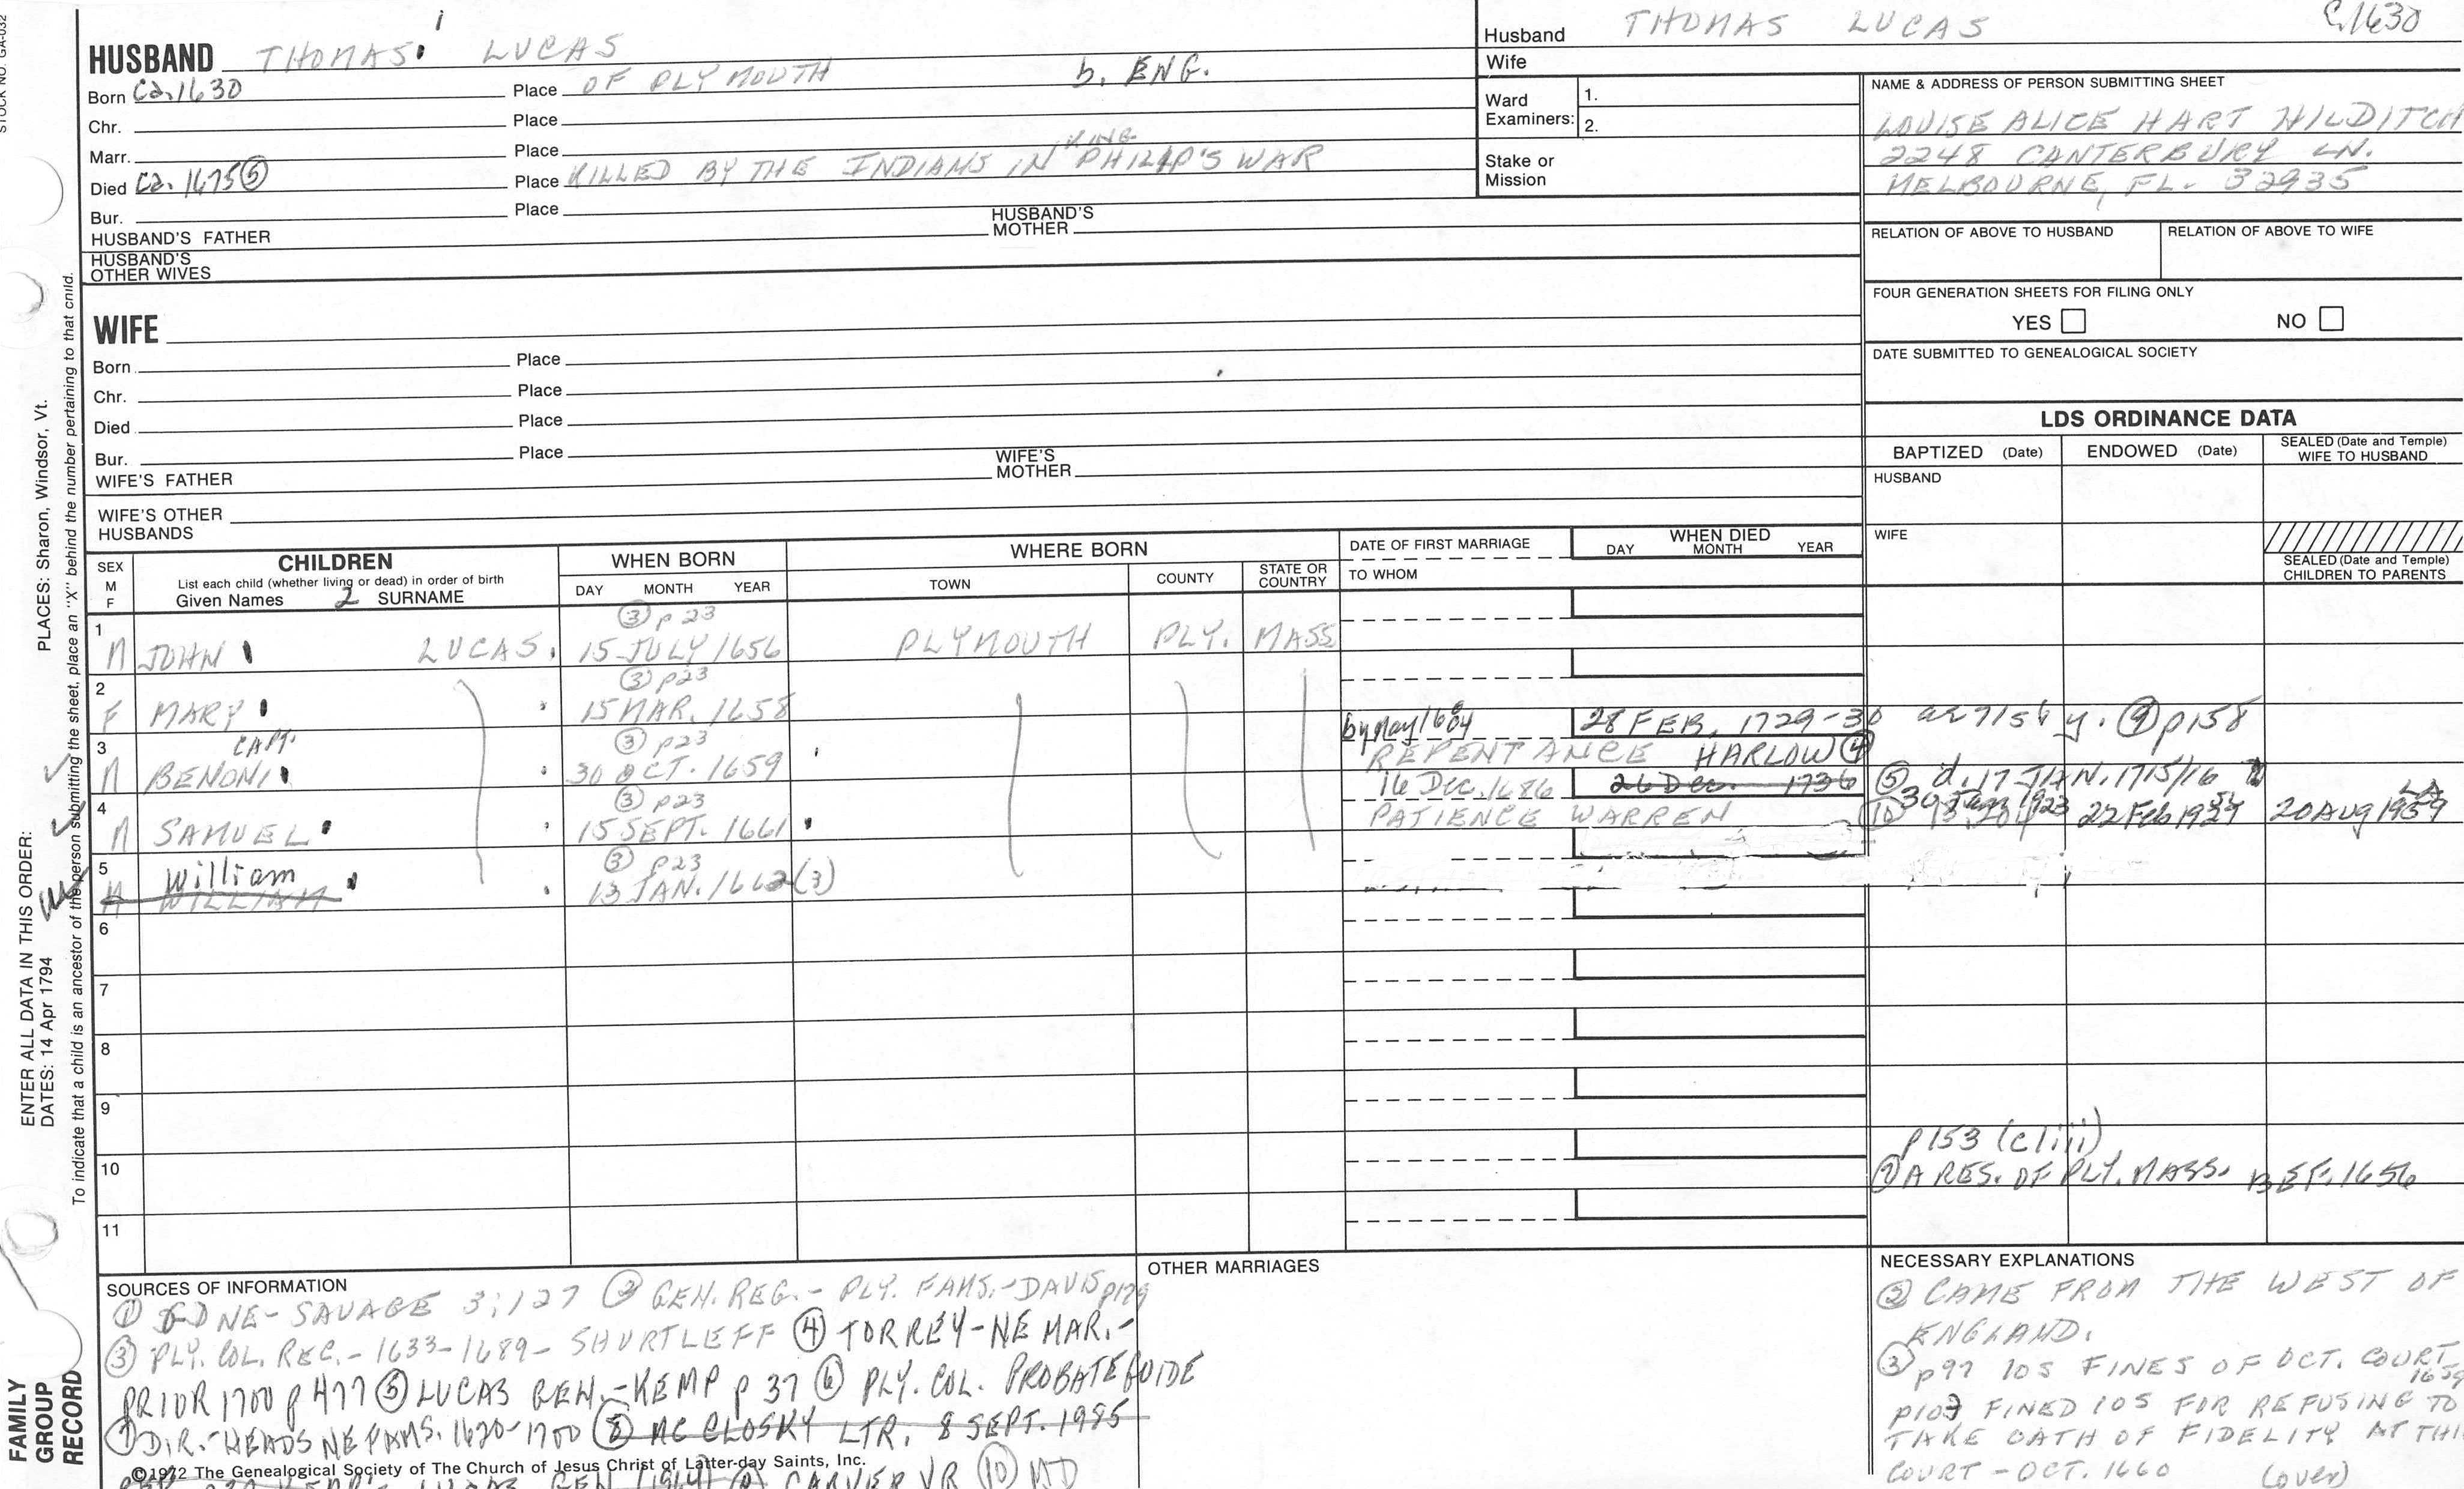 STOCK NO. GA-032
PLACES: Sharon, Windsor, Vt.
ENTER ALL DATA IN THIS ORDER:
DATES: 14 Apr 1794
To indicate that a child is an ancestor of the person submitting the sheet, place an "X" behind the number pertaining to that child.
FAMILY
GROUP
RECORD
HUSBAND THOMAS LUCAS
Born Ca. 1630 Place OF PLYMOUTH b. ENG.
Chr. Place
Marr. Place
KING
Died Ca. 1675 ⑤ Place KILLED BY THE INDIANS IN PHILIP'S WAR
Bur. Place
HUSBAND'S FATHER HUSBAND'S MOTHER
HUSBAND'S OTHER WIVES
Husband THOMAS LUCAS C.1630
Wife
Ward Examiners: 1.
2.
Stake or Mission
NAME & ADDRESS OF PERSON SUBMITTING SHEET
LOUISE ALICE HART HILDITCH
2248 CANTERBURY LN.
MELBOURNE, FL. 32935
RELATION OF ABOVE TO HUSBAND RELATION OF ABOVE TO WIFE
FOUR GENERATION SHEETS FOR FILING ONLY
YES NO
DATE SUBMITTED TO GENEALOGICAL SOCIETY
WIFE
Born Place
Chr. Place
Died Place
Bur. Place
WIFE'S FATHER WIFE'S MOTHER
WIFE'S OTHER HUSBANDS
LDS ORDINANCE DATA
BAPTIZED (Date) ENDOWED (Date) SEALED (Date and Temple) WIFE TO HUSBAND
HUSBAND
WIFE
SEALED (Date and Temple) CHILDREN TO PARENTS
SEX M F CHILDREN WHEN BORN WHERE BORN DATE OF FIRST MARRIAGE WHEN DIED
List each child (whether living or dead) in order of birth
Given Names 2 SURNAME DAY MONTH YEAR TOWN COUNTY STATE OR COUNTRY TO WHOM DAY MONTH YEAR
③ p 23
1 M JOHN LUCAS. 15 JULY 1656 PLYMOUTH PLY. MASS
③ p23
2 F MARY 15 MAR. 1658
by May 28 FEB. 1729-30 y. ⑨ p158
CAPT. ③ p23
3 M BENONI 30 OCT. 1659 REPENTANCE HARLOW ④
16 Dec. 1686 26 Dec. 1736 ⑤ d. 17 JAN. 1715/16
③ p23
4 M SAMUEL 15 SEPT. 1661 PATIENCE WARREN ⑩ 20 Aug 1959
③ p23
5 William 13 JAN. 1662(3)
M WILLIAM
6
7
8
9
10
11
p153 (cliii)
⑦ A RES. OF PLY. MASS. BEF. 1656
SOURCES OF INFORMATION
① GD NE - SAVAGE 3:127 ② GEN. REG. - PLY. FAMS. - DAVIS p179
③ PLY. COL. REC. - 1633-1689 - SHURTLEFF ④ TORREY - NE MAR. -
PRIOR 1700 p 477 ⑤ LUCAS GEN. - KEMP p 37 ⑥ PLY. COL. PROBATE GUIDE
⑦ DIR. - HEADS NE FAMS. 1620-1700 ⑧ MC CLOSKY LTR. 8 SEPT. 1985
©1972 The Genealogical Society of The Church of Jesus Christ of Latter-day Saints, Inc.
LUCAS GEN (1964) ⑨ CARVER VR ⑩ MD
OTHER MARRIAGES
NECESSARY EXPLANATIONS
② CAME FROM THE WEST OF
ENGLAND.
③ p97 10S FINES OF OCT. COURT
1659
FINED 10S FOR REFUSING TO
TAKE OATH OF FIDELITY AT THIS
COURT - OCT. 1660 (over)